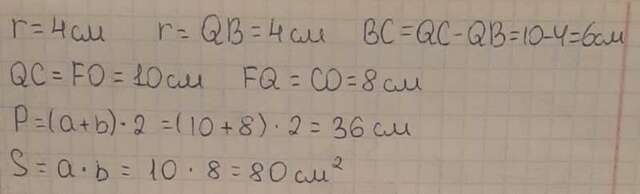 r=4см r=QB=4см BC=QC-QB=10-4=6см
QC=FO=10см FQ=CO=8см
P=(a+b)·2=(10+8)·2=36см
S=a·b=10·8=80см²